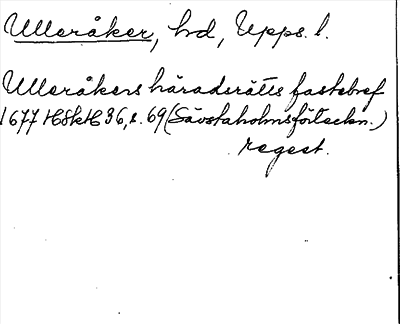 Ulleråker, hd, Upps. l.
Ulleråkers häradsrätts fastebref
1677 HSH 36, s. 69 (Sävstaholmsförteckn.)
regest.